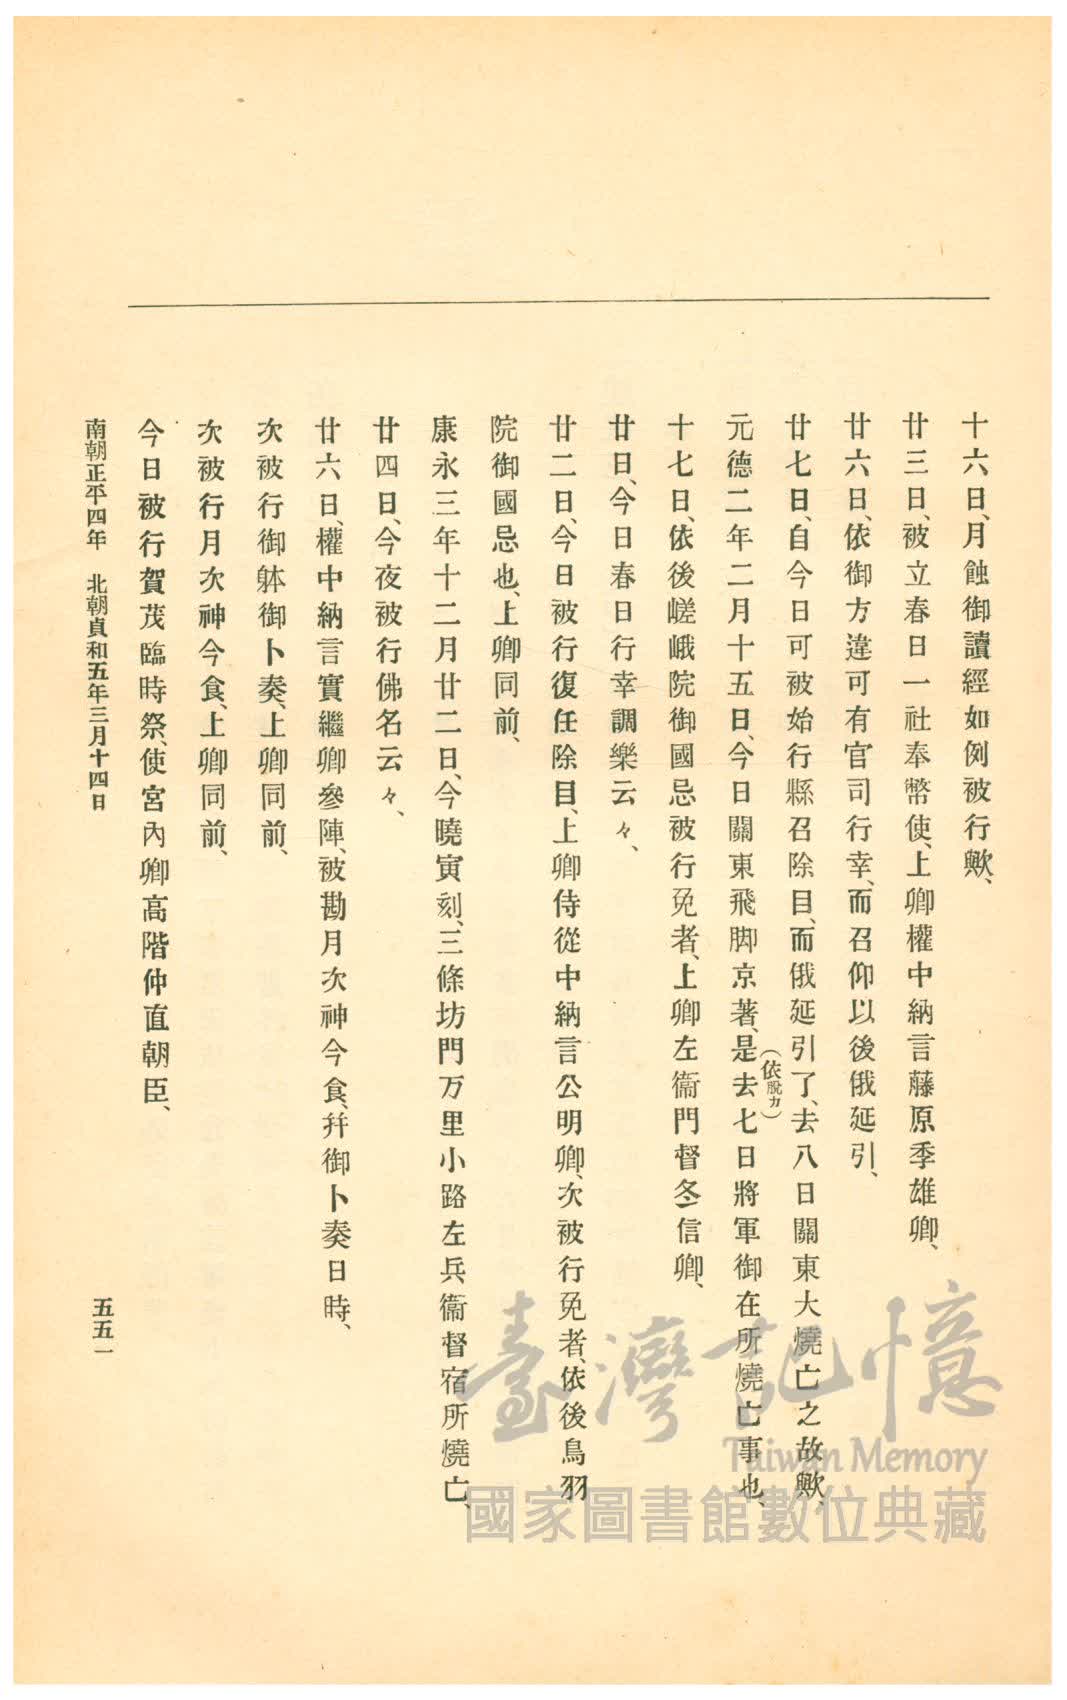 十六日、月蝕御讀經如例被行歟、
廿三日、被立春日一社奉幣使、上卿權中納言藤原季雄卿、
廿六日、依御方違可有官司行幸、而召仰以後俄延引、
廿七日、自今日可被始行縣召除目、而俄延引了、去八日關東大燒亡之故歟、
（依脱カ）
元德二年二月十五日、今日關東飛脚京著、是去七日將軍御在所燒亡事也、
十七日、依後嵯峨院御國忌被行免者、上卿左衞門督冬信卿、
廿日、今日春日行幸調樂云々、
廿二日、今日被行復任除目、上卿侍從中納言公明卿、次被行免者、依後鳥羽
院御國忌也、上卿同前、
康永三年十二月廿二日、今曉寅刻、三條坊門万里小路左兵衞督宿所燒亡、
廿四日、今夜被行佛名云々、
廿六日、權中納言實繼卿參陣、被勘月次神今食、幷御卜奏日時、
次被行御躰御卜奏、上卿同前、
次被行月次神今食、上卿同前、
今日被行賀茂臨時祭、使宮內卿高階仲直朝臣、
南朝正平四年 北朝貞和五年三月十四日
五五一
臺灣記憶
Taiwan Memory
國家圖書館數位典藏